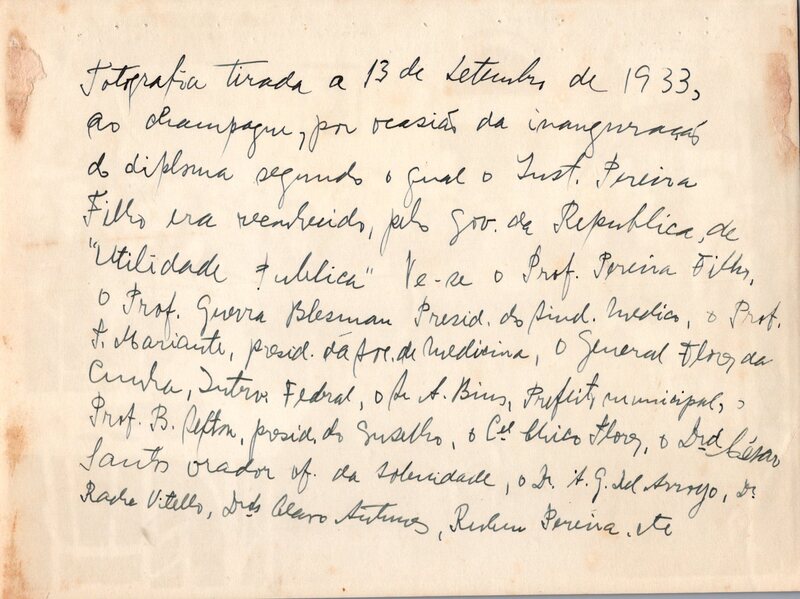 Fotografia tirada a 13 de Setembro de 1933,
ao champagne, por ocasião da inauguração
do diploma segundo o qual o Inst. Pereira
Filho era reconhecido, pelo Gov. da Republica, de
"Utilidade Publica" Ve-se o Prof. Pereira Filho,
o Prof. Guerra Blesman Presid. do Sind. Medico, o Prof.
P. Mariante, presid. da Soc. de Medicina, o General Flores da
Cunha, Interv Federal, o Sr A. Bins, Prefeito municipal, o
Prof. B. presid. do o Cel Chico Flores, o Drd César
Santos orador of. da solenidade, o Dr. A. G. del Arroyo, Dr.
Vitello, Drds Antunes, Ruben Pereira, etc